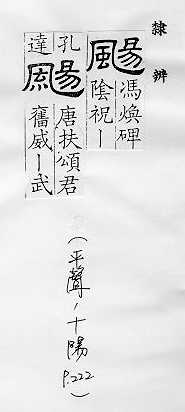 隸辨
颺
馮煥碑
陰祝丨
孔
達
颺
唐扶頌君
奮威丨武
(平聲,十陽
p.222)